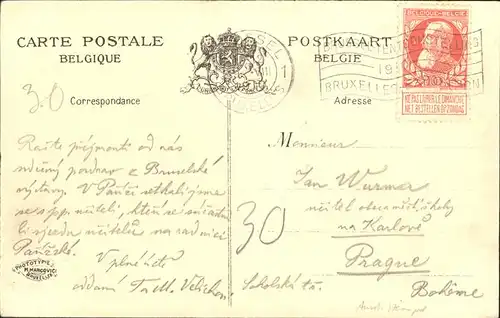 CARTE POSTALE
BELGIQUE
POSTKAART
BELGIË
BELGIQUE-BELGIË
NE PAS LIVRER LE DIMANCHE
NIET BESTELLEN OP ZONDAG
1
BRUXELLES
30
Correspondance
Adresse
Račte přijmouti od nás
srdečný pozdrav z Bruselské
výstavy. V Paříži setkali jsme
se s pp. učiteli, kteří se súčastnili
sjezdu učitelův na radnici
Pařížské.
V plné úctě
oddaný
Monsieur
Jan Wurma
učitel obec. a měšť. školy
na Karlově
Prague
Sokolská tř.
Bohême
30
PHOTOTYPIE
M. MARCOVICI
BRUXELLES